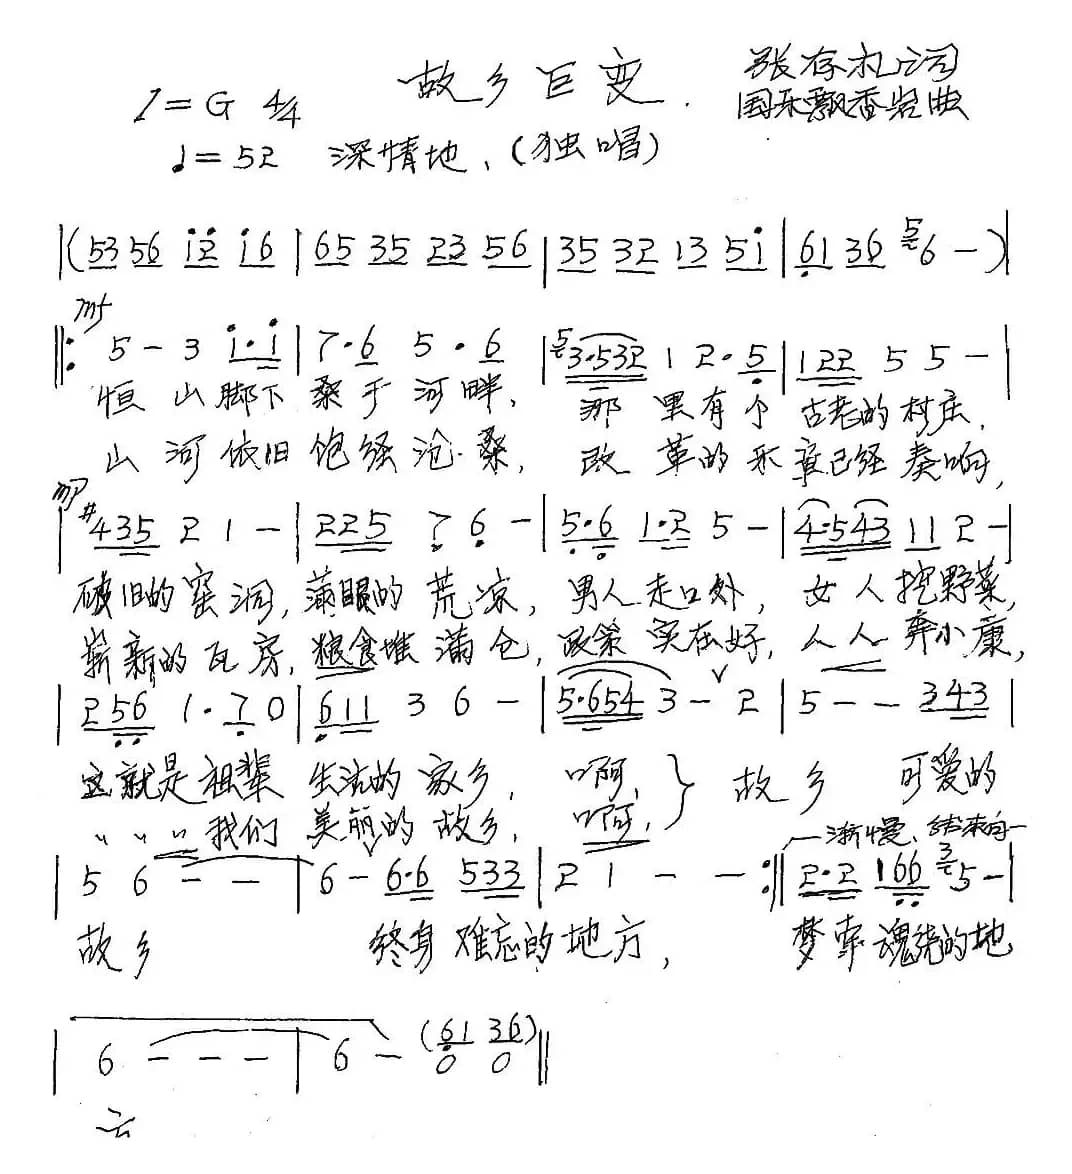 故乡巨变
张存礼词
国乐飘香岩曲
1=G 4/4
♩=52 深情地、(独唱)
|(53 56 i2 i6|65 35 23 56|35 32 13 5i|61 36 56 -)|
mf
‖: 5 - 3 i·i|7·6 5·6|53·532 1 2·5|122 5 5 -|
恒山脚下桑干河畔, 那里有个古老的村庄,
山河依旧饱经沧桑, 改革的乐章已经奏响,
mp
|#435 2 1 -|225 7 6 -|5·6 1·2 5 -|4·543 11 2 -|
破旧的窑洞, 满眼的荒凉, 男人走口外, 女人挖野菜,
崭新的瓦房, 粮食堆满仓, 政策实在好, 人人奔小康,
|256 1·7 0|611 3 6 -|5·654 3 - 2|5 - - 343|
这就是祖辈生活的家乡, 啊, } 故乡 可爱的
〃 〃 〃 我们美丽的故乡, 啊,
渐慢、结束句
|5 6 - -|6 - 6·6 533|2 1 - - :‖2·2 166 35 -|
故乡 终身难忘的地方, 梦牵魂绕的地
|6 - - -|6 - (61 36)‖
0 0
方